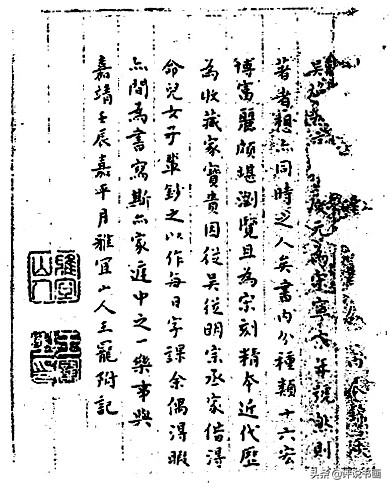 慶元為宋寧宗年號然則
著者想亦同時之人矣書內分種類十六宏
博富麗頗堪瀏覽且為宋刻精本近代歷
為收藏家寶貴因從吳從明宗丞家借得
命兒女子輩鈔之以作每日字課余偶得暇
亦間為書寫斯亦家庭中之一樂事與
嘉靖壬辰嘉平月雅宜山人王寵附記
雅宜山人
头条@评说书画